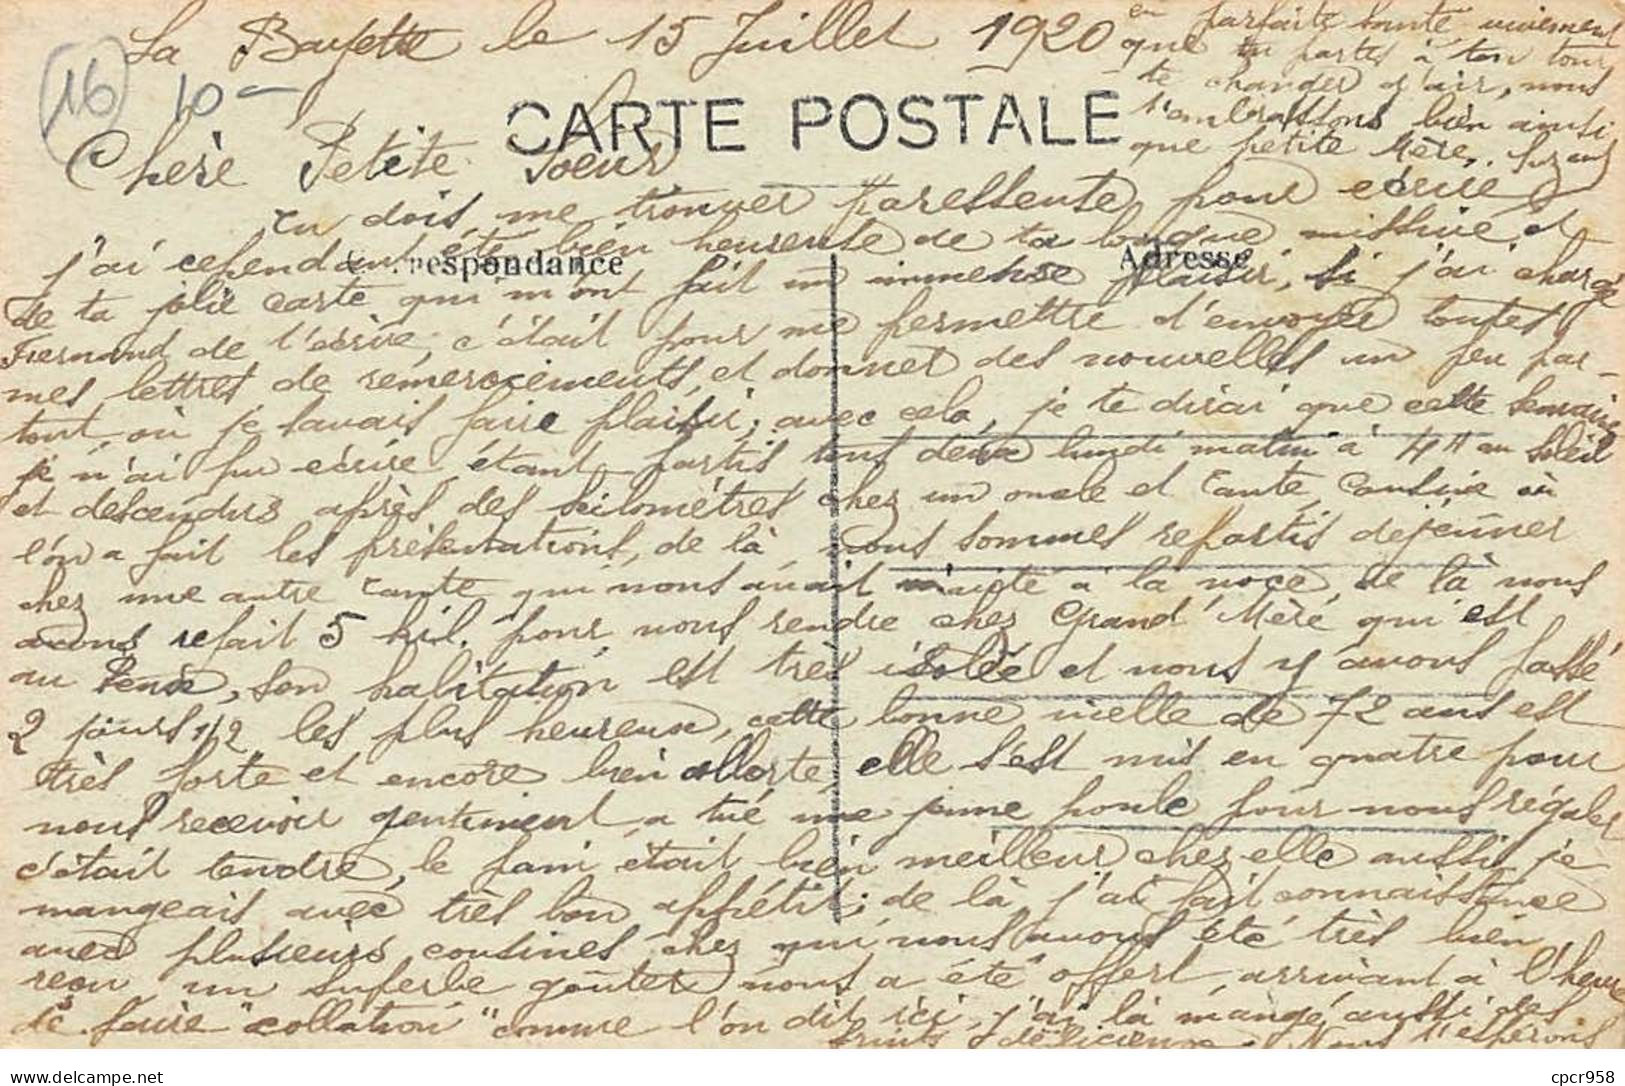 La Bayette le 15 Juillet 1920
16
10-
CARTE POSTALE
Chère Petite Soeur
tu dois me trouver paresseuse pour écrire
j'ai cependant été bien heureuse de ta longue missive et
Correspondance
Adresse
de ta jolie carte qui m'ont fait un immense plaisir, si j'ai chargé
Fernand de t'écrire, c'était pour me permettre d'envoyer toutes
mes lettres de remerciements, et donner des nouvelles un peu par-
tout, où je savais faire plaisir; avec cela, je te dirai que cette semaine
je n'ai pu écrire étant partis tous deux lundi matin à 4H au soleil
et descendus après des kilomètres chez un oncle et Tante, Cousine où
l'on a fait les présentations, de là nous sommes repartis déjeuner
chez une autre Tante qui nous avait invité à la noce, de là nous
avons refait 5 kil. pour nous rendre chez Grand'Mère qui est
au, son habitation est très isolée et nous y avons passé
2 jours 1/2 les plus heureux, cette bonne vielle de 72 ans est
très forte et encore bien allerte, elle s'est mis en quatre pour
nous recevoir gentiment, a tué une jeune poule pour nous régaler
c'était tendre, le pain était bien meilleur chez elle aussi, je
mangeais avec très bon appétit; de là j'ai fait connaissance
avec plusieurs cousines chez qui nous avons été très bien
reçu un superbe goûter nous a été offert, arrivant à l'heure
de faire "collation" comme l'on dit ici, j'ai là mangé aussi des
fruits délicieux. Nous t'espérons
en parfaite santé vivement
que tu partes à ton tour
te changer d'air, nous
t'embrassons bien ainsi
que petite Mère.
cpcr958